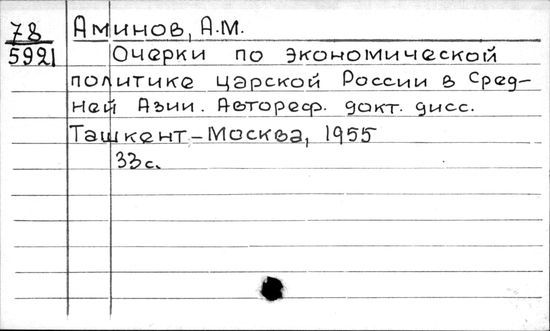 78
5921
Аминов, А.М.
Очерки по экономической
политике царской России в Сред-
ней Азии. Автореф. докт. дисс.
Ташкент-Москва, 1955
33с.